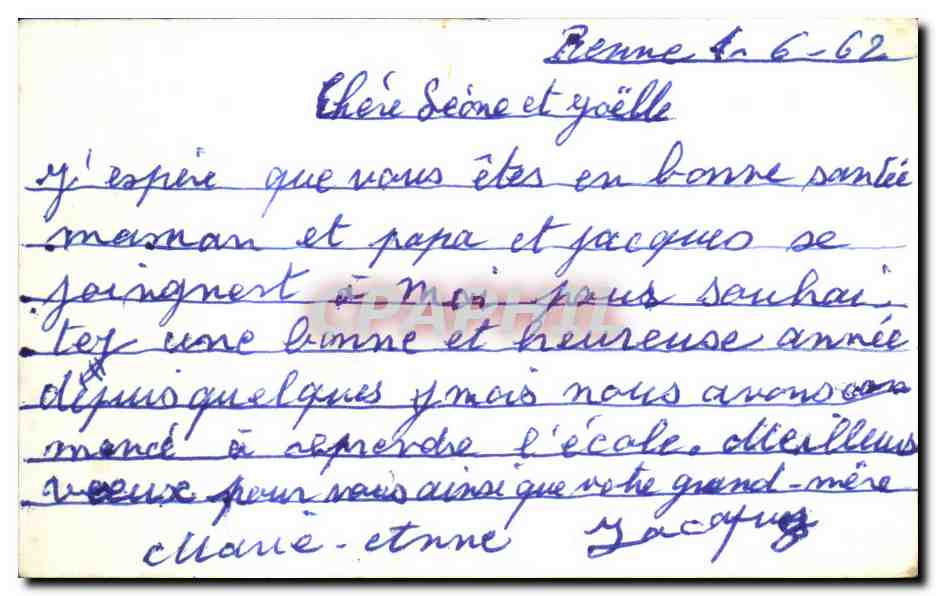 Renne 1-6-62
Chére Léone et Joëlle
J'espére que vous êtes en bonne santée
maman et papa et jacques se
joingnest à moi pous souhai
tez une bonne et heureuse année
dépuis quelques mois nous avons com
mencé à reprendre l'école. Meilleus
voeux pour vous ainsi que votre grand-mère
Marie-Anne Jacques
CPAPHIL